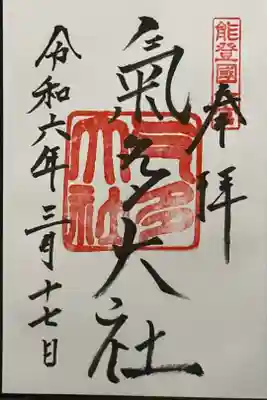 奉拝
氣多大社
令和六年三月十七日
能登國一宮
气多大社